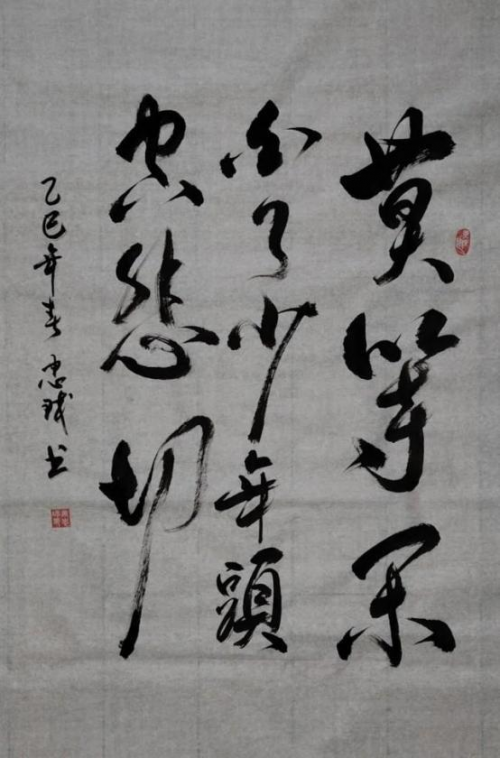 莫等闲
白了少年頭
空悲切
乙巳年春 忠书